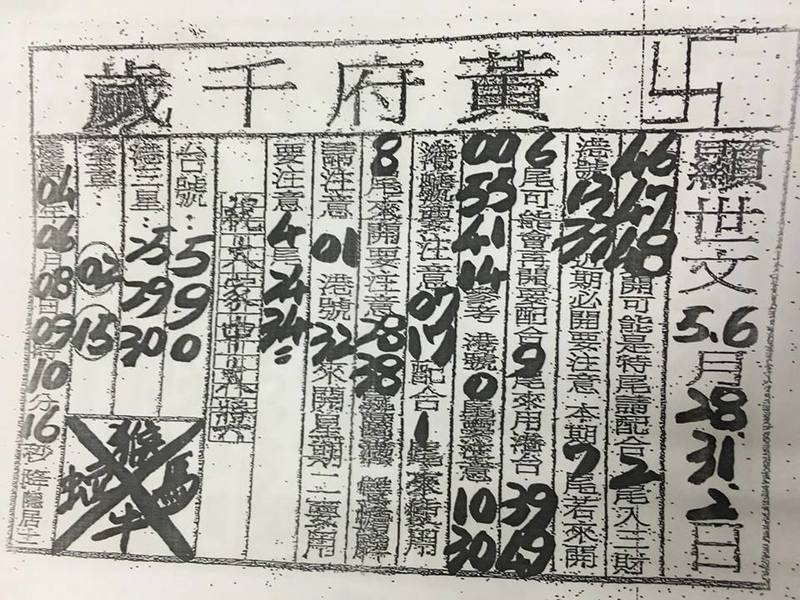 卐黃府千歲
顯世文5.6月28.31.2日
46 47 48開可能是特尾請配合2尾入三財
港號13 37近期必開要注意 本期7尾若來開
6尾可能會再開要配合9尾來用港台39 49
00 55 41 14參考 港號0注意10 30
港號要注意07 17配合1尾來活用
8尾來開要注意28 38
注意01港號32來開星期二
要注意4尾24 34=
祝大家中大獎
台號:5 9 0
港二星:25 29 30
02 15
猴
蛇 馬
牛
04年06月08日09時10分16秒降臨